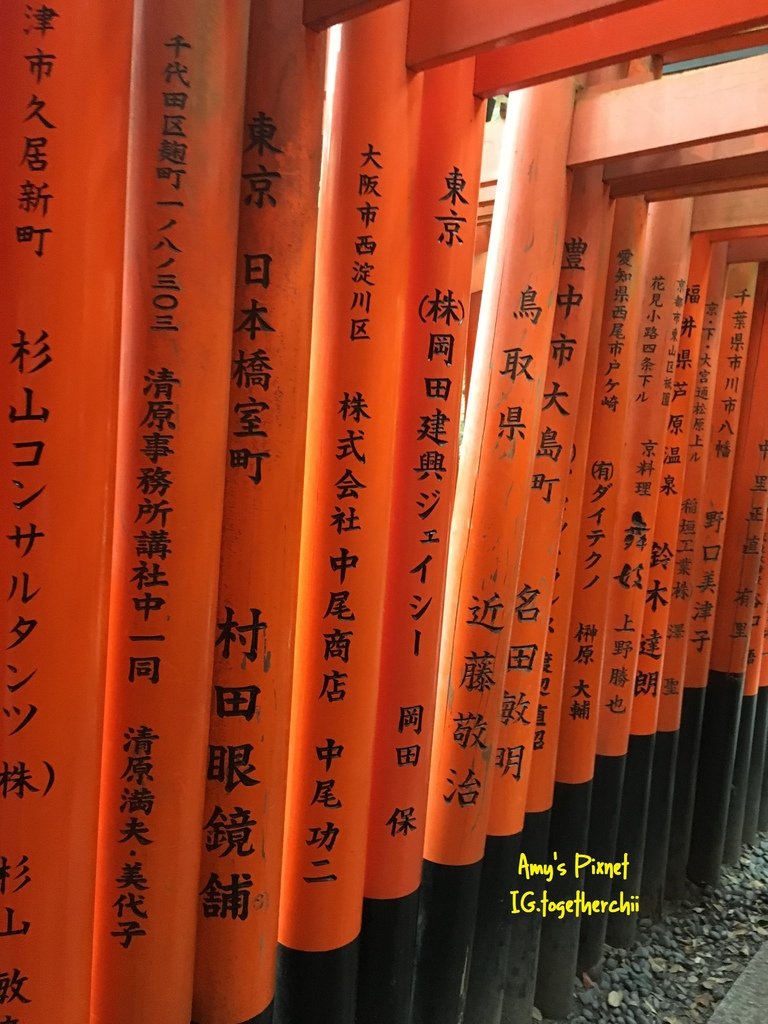 津市久居新町 杉山コンサルタンツ(株) 杉山 敏
千代田区麹町一ノ八ノ三〇三 清原事務所講社中一同 清原満夫・美代子
東京 日本橋室町 村田眼鏡舗
大阪市西淀川区 株式会社中尾商店 中尾功二
東京 (株)岡田建興ジェイシー 岡田 保
鳥取県 近藤敬治
豊中市大島町 名田敏明
渡辺直昭
愛知県西尾市戸ケ崎 (有)ダイテクノ 榊原大輔
花見小路四条下ル 京料理 舞妓 上野勝也
京都市東山区祇園
福井県芦原温泉 鈴木達朗
京・下・大宮通松原上ル 稲垣工業株
千葉県市川市八幡 野口美津子
中里正直
有里
Amy's Pixnet
IG.togetherchii